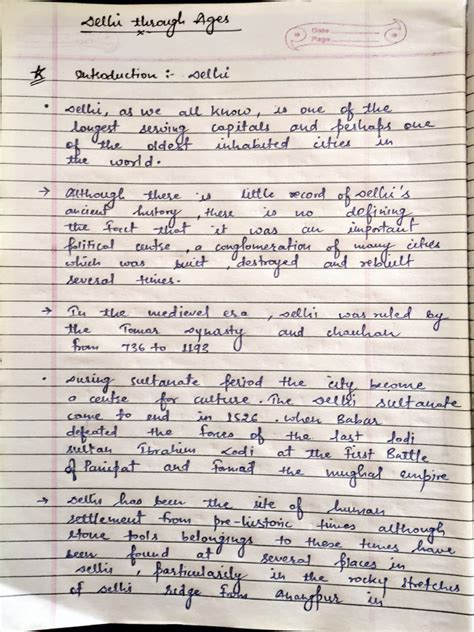 Delhi through Ages
Date
Page
Introduction :- Delhi
• Delhi, as we all know, is one of the
longest serving capitals and perhaps one
of the oldest inhabited cities in
the world.
→ Although there is little record of Delhi's
ancient history, there is no defining
the fact that it was an important
political centre, a conglomeration of many cities
which was built, destroyed and rebuilt
several times.
→ In the medievel era, Delhi was ruled by
the Tomar Dynasty and chauhan
from 736 to 1193
• During sultanate period the city become
a centre for culture. The Delhi sultanate
came to end in 1526. when Babar
defeated the forces of the last lodi
sultan Ibrahim Lodi at the First Battle
of Panipat and fomad the mughal empire
→ Delhi has been the site of human
settlement from pre-historic times although
stone tools belongings to these times have
been found at several places in
Delhi, particularly in the rocky stretches
of Delhi ridge from Anangpur in